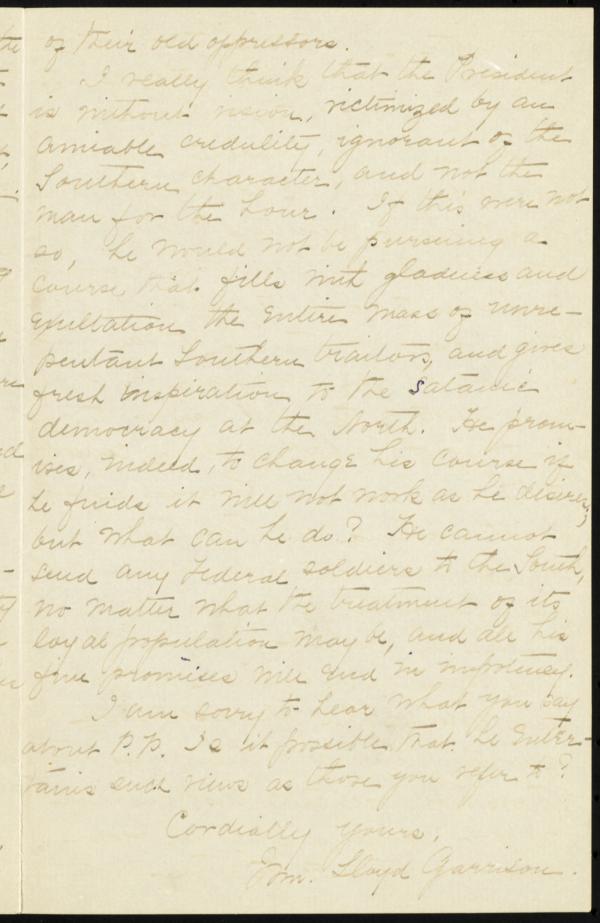 of their old oppressors.
I really think that the President
is without vision, victimized by an
amiable credulity, ignorant of the
Southern character, and not the
man for the hour. If this were not
so, he would not be pursuing a
course that fills with gladness and
exultation the entire mass of unre-
pentant Southern traitors, and gives
fresh inspiration to the Satanic
democracy at the North. He prom-
ises, indeed, to change his course if
he finds it will not work as he desires;
but what can he do? He cannot
send any Federal soldiers to the South,
no matter what the treatment of its
loyal population may be, and all his
fine promises will end in impotency.
I am sorry to hear what you say
about P.P. Is it possible that he enter-
tains such views as those you refer to?
Cordially yours,
Wm. Lloyd Garrison.